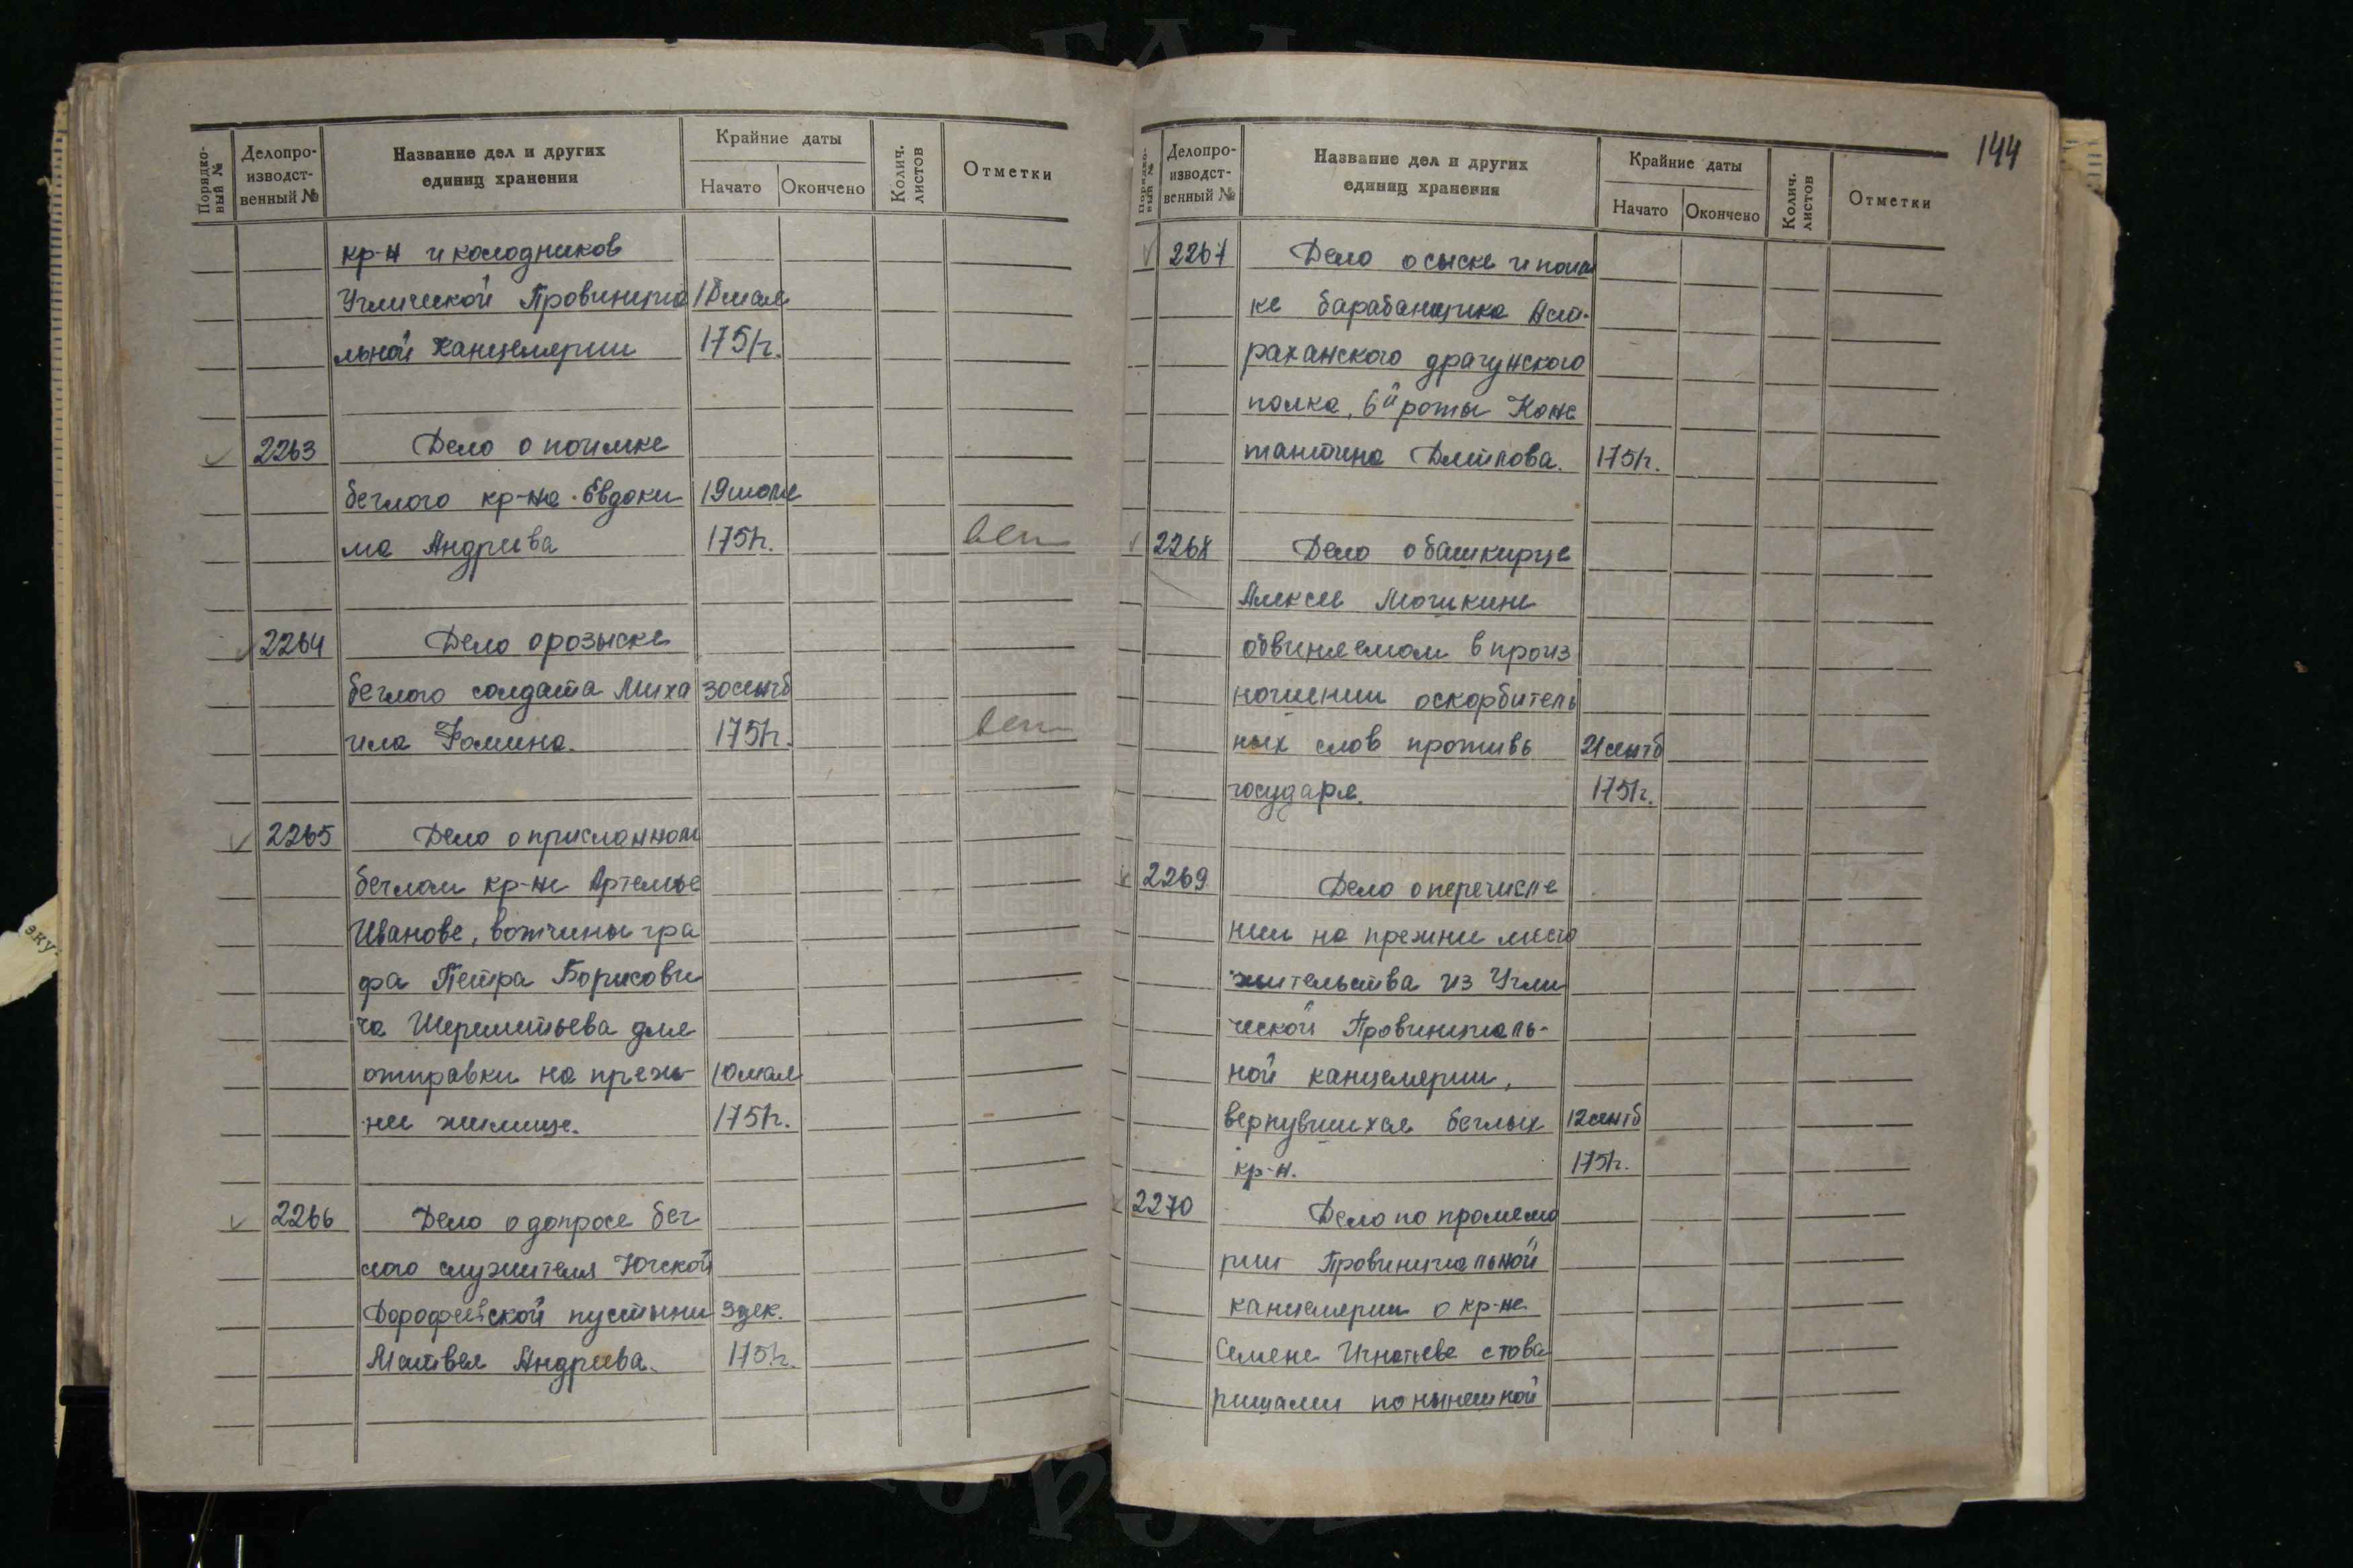 Порядко-
вый №
Делопро-
изводст-
венный №
Название дел и других
единиц хранения
Крайние даты
Начато
Окончено
Колич.
листов
Отметки
кр-н и колодников
Угличской Провинциа
18 мая
льной канцелярии
1751г.
2263
Дело о поимке
беглого кр-на Евдоки
19 июля
ма Андреева
1751г.
2264
Дело о розыске
беглого солдата Миха
30 сентб
ила Фомина.
1751г.
2265
Дело о присланном
беглом кр-не Артемье
Иванове, вотчины гра
фа Петра Борисови
ча Шереметьева для
отправки на преж-
10 мая
нее жилище.
1751г.
2266
Дело о допросе бег
лого служителя Югской
Дорофеевской пустыни
3 дек.
Матвея Андреева.
1751г.
144
Порядко-
вый №
Делопро-
изводст-
венный №
Название дел и других
единиц хранения
Крайние даты
Начато
Окончено
Колич.
листов
Отметки
2267
Дело о сыске и поим
ке барабанщика Аст-
раханского драгунского
полка, 6й роты Конс
тантина
1751г.
2268
Дело о башкирце
Алексее
обвиняемом в произ
ношении оскорбитель
ных слов противъ
21 сентб
государя.
1751г.
2269
Дело о перечисле
нии на прежни место
жительства из Угли
ческой Провинциаль-
ной канцелярии,
вернувшихся беглых
12 сентб
кр-н.
1751г.
2270
Дело по промемо
рии Провинциальной
канцелярии о кр-не
Семене Игнатьеве с това
рищами по